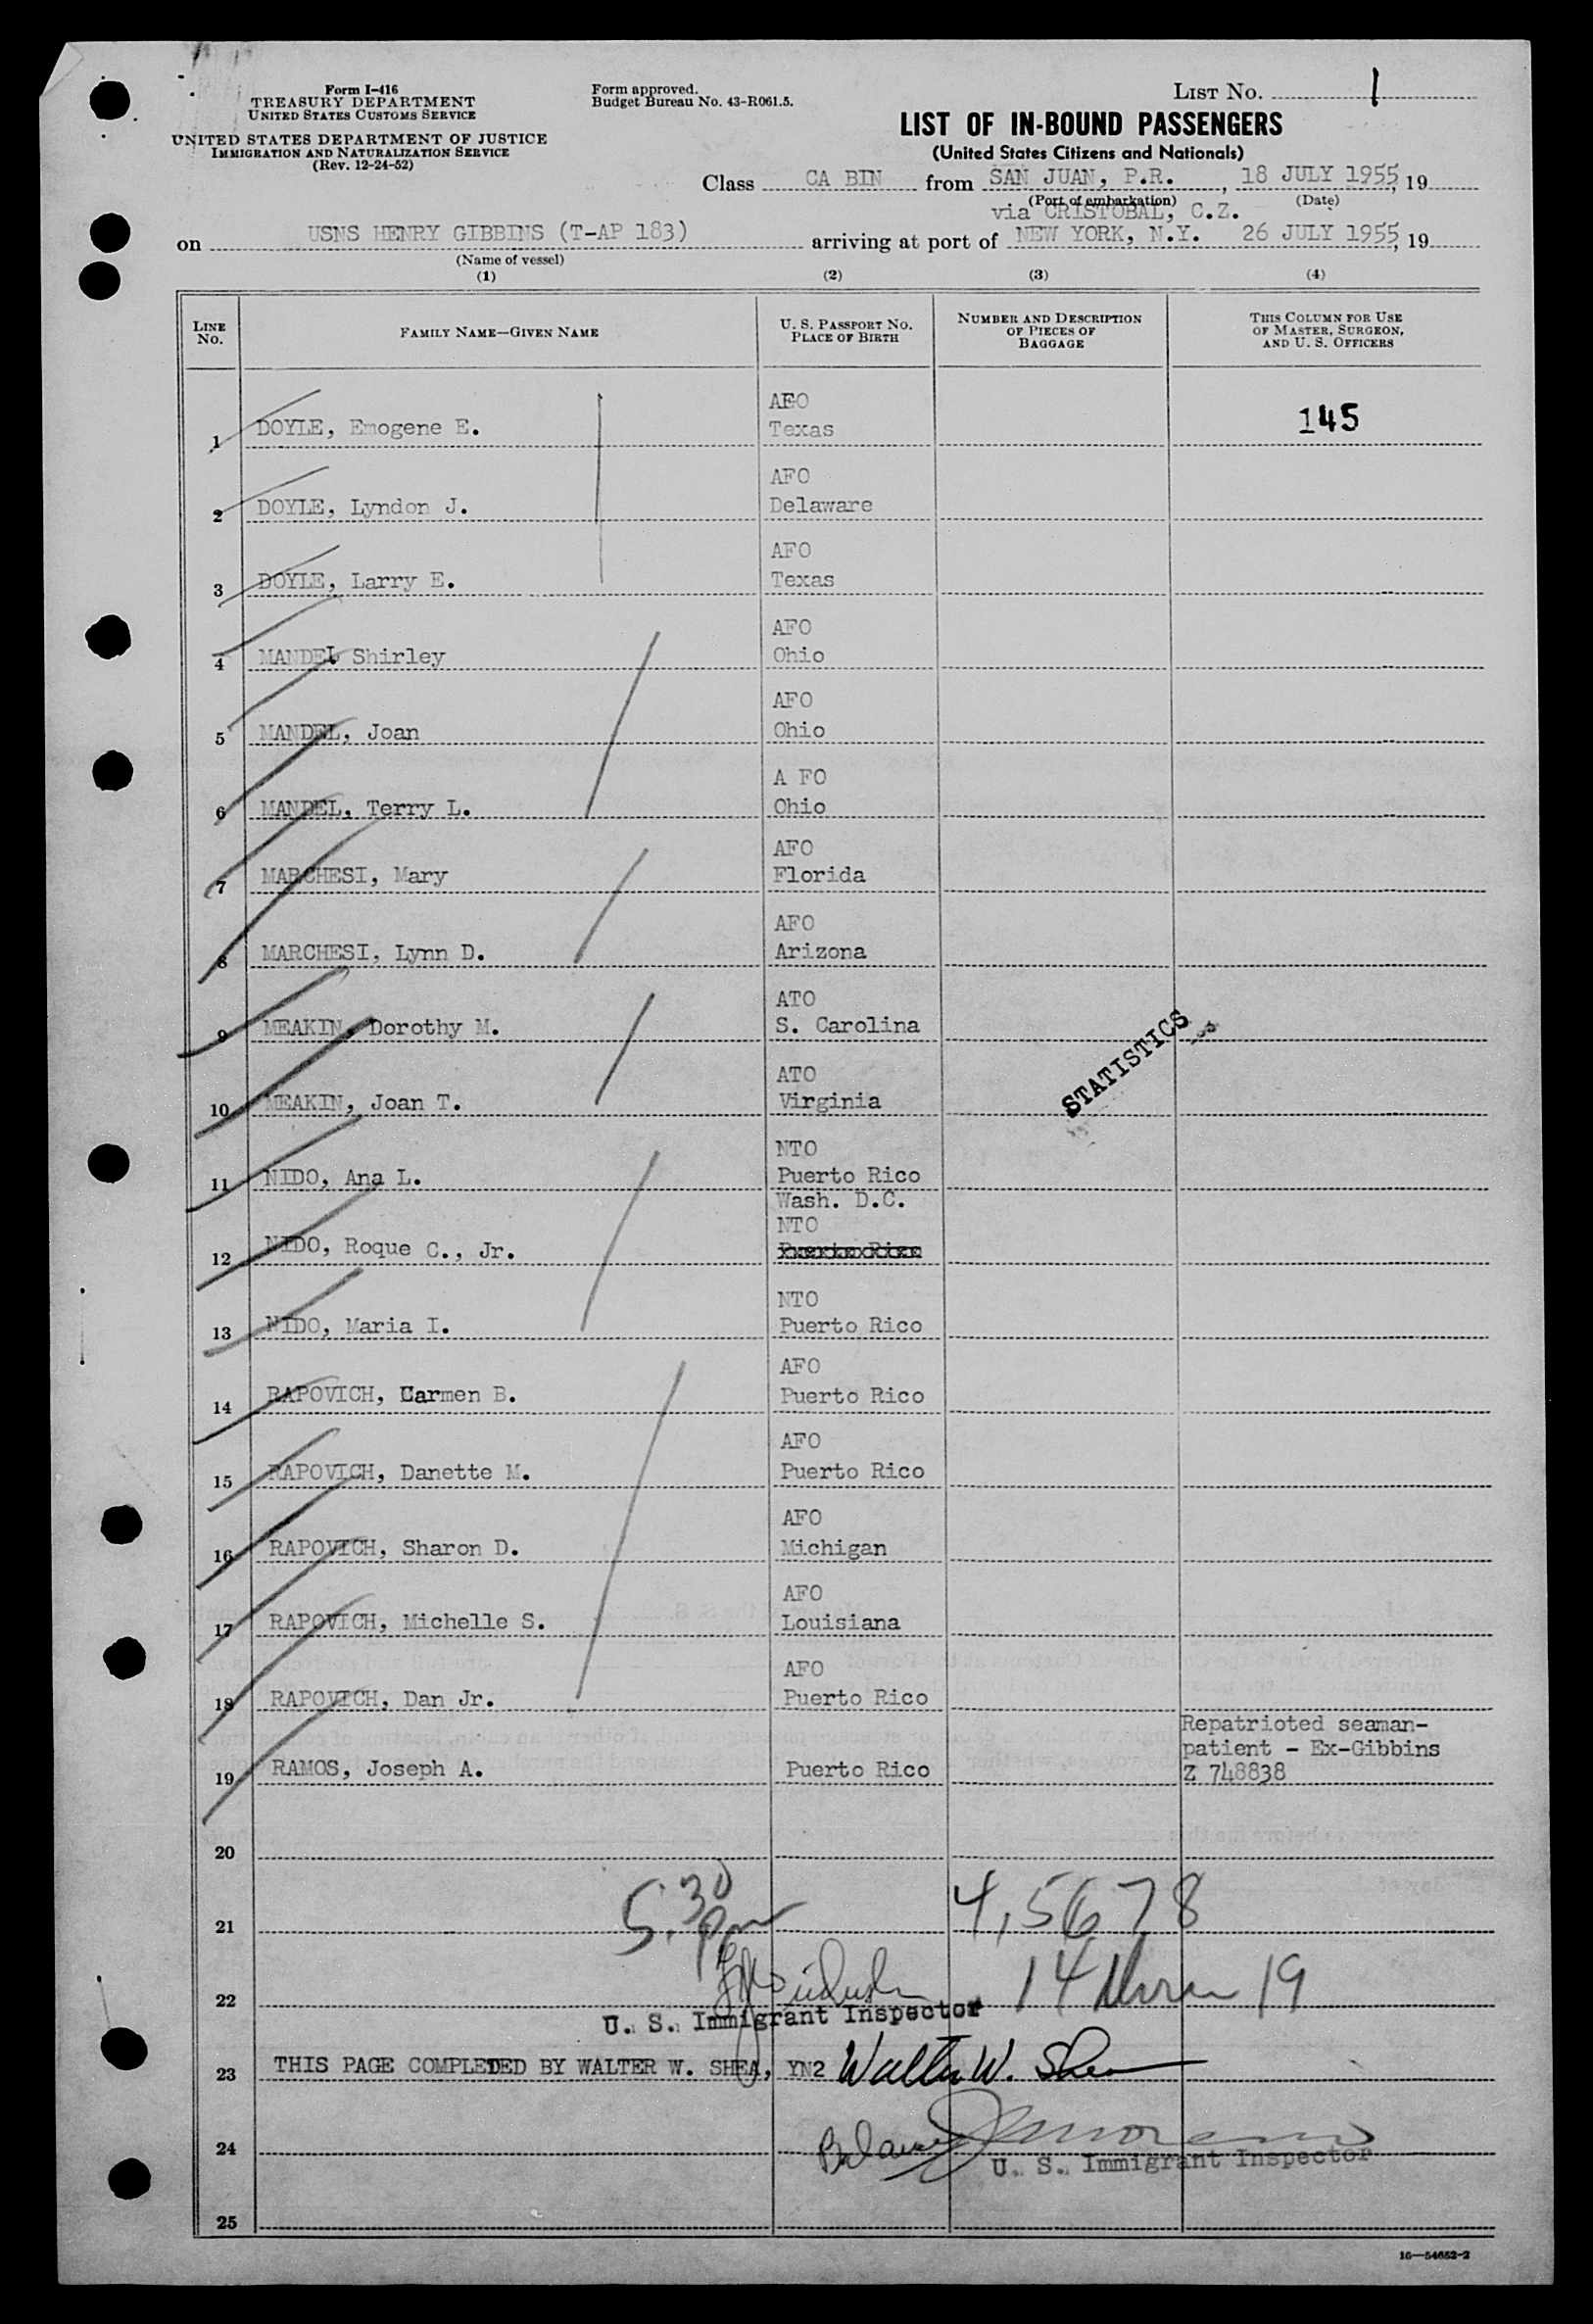 Form I-416
TREASURY DEPARTMENT
UNITED STATES CUSTOMS SERVICE
UNITED STATES DEPARTMENT OF JUSTICE
IMMIGRATION AND NATURALIZATION SERVICE
(Rev. 12-24-52)
Form approved.
Budget Bureau No. 43-R061.5.
LIST NO. 1
LIST OF IN-BOUND PASSENGERS
(United States Citizens and Nationals)
Class CA BIN from SAN JUAN, P.R., 18 JULY 1955, 19
(Port of embarkation) (Date)
via CRISTOBAL, C.Z.
on USNS HENRY GIBBINS (T-AP 183) arriving at port of NEW YORK, N.Y. 26 JULY 1955, 19
(Name of vessel)
(1) (2) (3) (4)
LINE NO. FAMILY NAME—GIVEN NAME U. S. PASSPORT NO. PLACE OF BIRTH NUMBER AND DESCRIPTION OF PIECES OF BAGGAGE THIS COLUMN FOR USE OF MASTER, SURGEON, AND U. S. OFFICERS
AFO
1 DOYLE, Emogene E. Texas 145
AFO
2 DOYLE, Lyndon J. Delaware
AFO
3 DOYLE, Larry E. Texas
AFO
4 MANDEL Shirley Ohio
AFO
5 MANDEL, Joan Ohio
A FO
6 MANDEL, Terry L. Ohio
AFO
7 MARCHESI, Mary Florida
AFO
8 MARCHESI, Lynn D. Arizona
ATO
9 MEAKIN, Dorothy M. S. Carolina
STATISTICS
ATO
10 MEAKIN, Joan T. Virginia
NTO
11 NIDO, Ana L. Puerto Rico
Wash. D.C.
NTO
12 NIDO, Roque C., Jr.
NTO
13 NIDO, Maria I. Puerto Rico
AFO
14 RAPOVICH, Carmen B. Puerto Rico
AFO
15 RAPOVICH, Danette M. Puerto Rico
AFO
16 RAPOVICH, Sharon D. Michigan
AFO
17 RAPOVICH, Michelle S. Louisiana
AFO
18 RAPOVICH, Dan Jr. Puerto Rico
Repatrioted seaman-
patient - Ex-Gibbins
19 RAMOS, Joseph A. Puerto Rico Z 748838
20
5:30 pm 4,5678
21
14 19
22
U. S. Immigrant Inspector
23 THIS PAGE COMPLETED BY WALTER W. SHEA, YN2 Walter W. Shea
24
U. S. Immigrant Inspector
25
16—54652-2